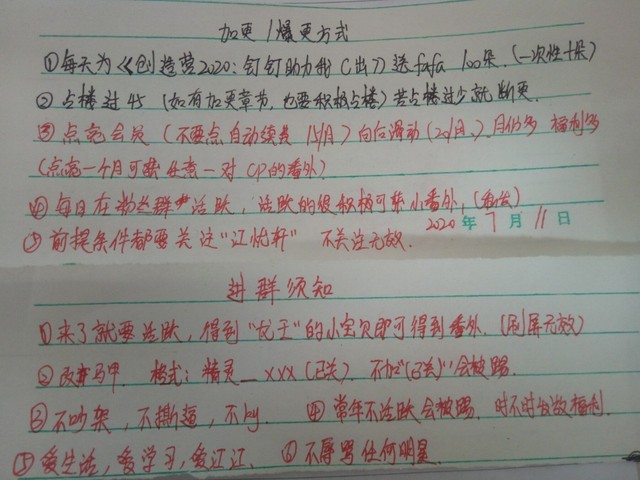 加更/爆更方式
①每天为《创造营2020:钉钉助力我C出》送fafa 100朵.(一次性十朵)
②点楼过45 (如有加更章节,也要积极点楼)若点楼过少就断更.
③点亮会员(不要点自动续费 15/月)向后滑动(20/月.)月份多 福利多
(点亮一个月可获任意一对CP的番外)
④每日在粉丝群活跃,活跃的很积极可获小番外,(私发)
2020年7月11日
⑤前提条件都要关注"江忱轩" 不关注无效.
进群须知
①来了就要活跃,得到"龙王"的小宝贝即可得到番外.(刷屏无效)
②改马甲. 格式:精灵__xxx(已关). 不加"(已关)"会被踢.
③不吵架,不撕逼,不ky. ④常年不活跃会被踢、时不时会放福利.
⑤爱生活,爱学习,爱江江、 ⑥不辱骂任何明星.